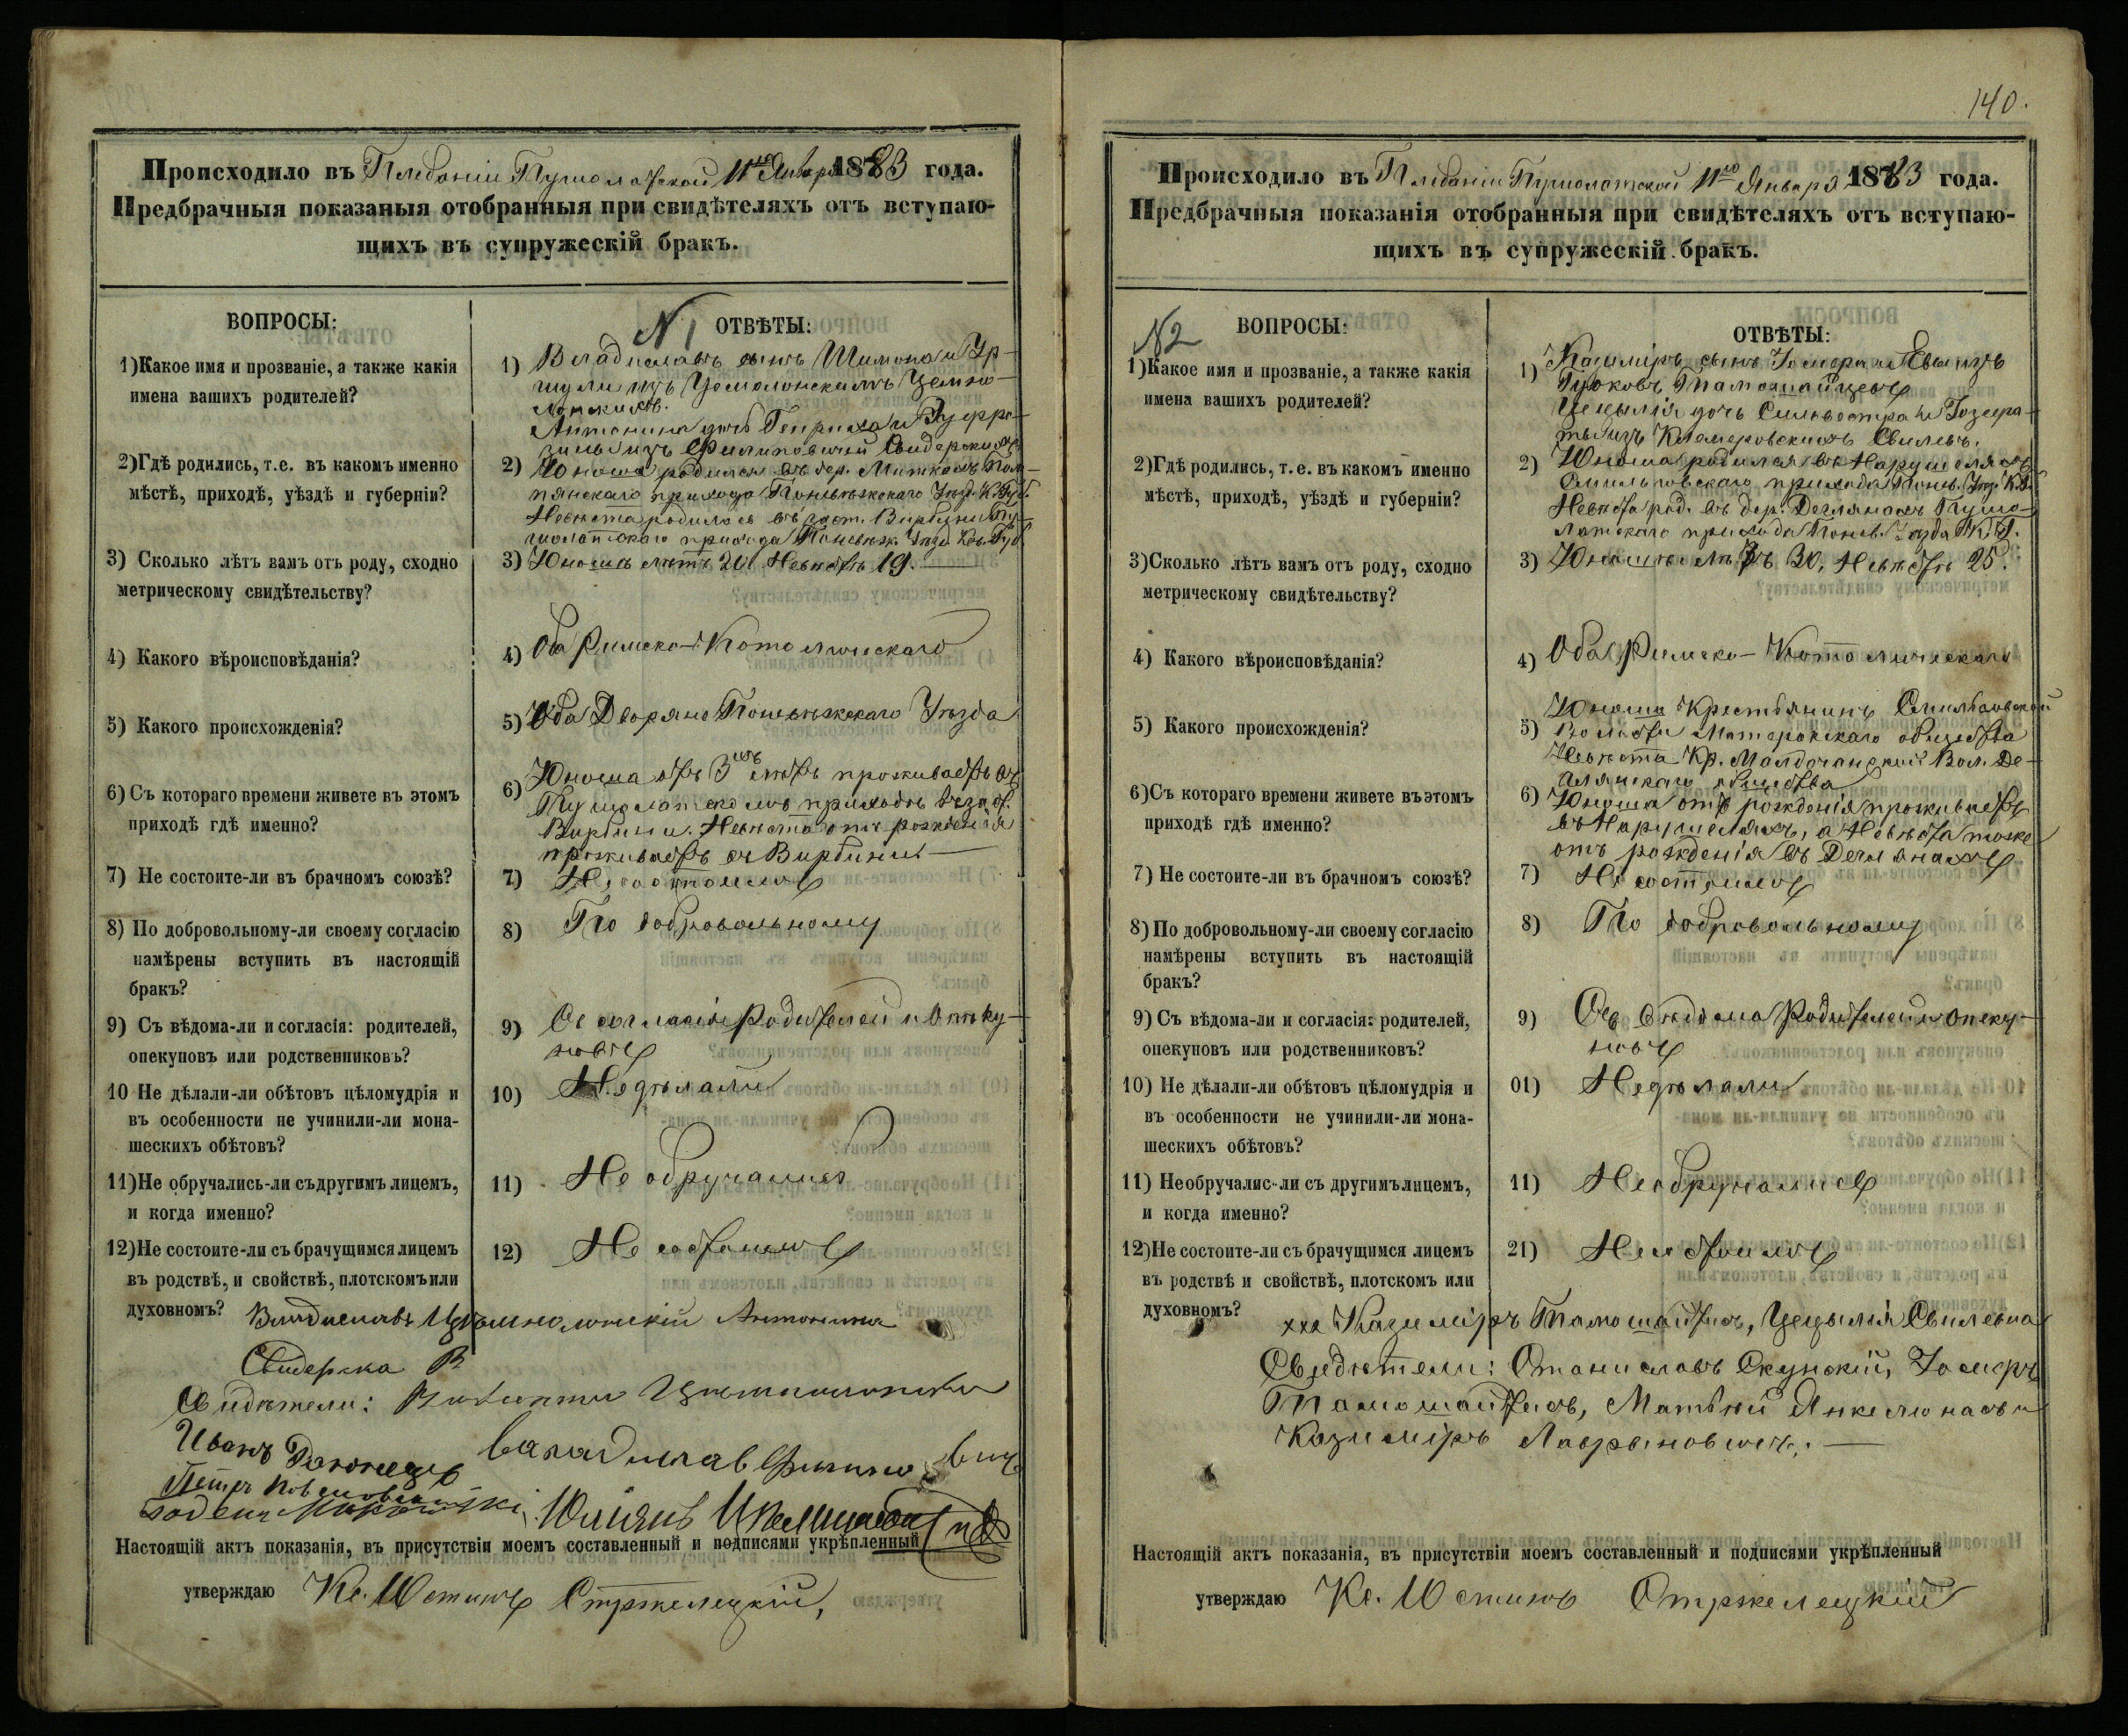 Происходило въ Плебаніи Пушолатской 11го Января 1883 года.
Предбрачныя показаныя отобранныя при свидѣтеляхъ отъ вступаю-
щихъ въ супружескій бракъ.
ВОПРОСЫ:
1)Какое имя и прозваніе, а также какія
имена вашихъ родителей?
2)Гдѣ родились, т.е. въ какомъ именно
мѣстѣ, приходѣ, уѣздѣ и губерніи?
3) Сколько лѣтъ вамъ отъ роду, сходно
метрическому свидѣтельству?
4) Какого вѣроисповѣданія?
5) Какого происхожденія?
6) Съ котораго времени живете въ этомъ
приходѣ гдѣ именно?
7) Не состоите-ли въ брачномъ союзѣ?
8) По добровольному-ли своему согласію
намѣрены вступить въ настоящій
бракъ?
9) Съ вѣдома-ли и согласія: родителей,
опекуповъ или родственниковъ?
10 Не дѣлали-ли обѣтовъ цѣломудрія и
въ особенности не учинили-ли мона-
шескихъ обѣтовъ?
11)Не обручались-ли съ другимъ лицемъ,
и когда именно?
12)Не состоите-ли съ брачущимся лицемъ
въ родствѣ, и свойствѣ, плотскомъ или
духовномъ?
N 1 ОТВѢТЫ:
1) Владиславъ сынъ Шимона и Ур-
шули изъ
Антонина дочь Генриха и Евфро-
зины изъ Филиповичей Свидерскихъ
2) Юноша родился въ дер.
прихода Поневѣжскаго Уѣзд. К. Губ.
Невѣста родилась въ заст. Вирбуни Пу-
шолатскаго прихода Поневѣж. Уѣзд Ков. Губ.
3) Юношѣ лѣтъ 20 Невѣстѣ 19.
4) Оба Римско-Католическаго
5) Оба Дворяне Поневѣжскаго Уѣзда
6) Юноша отъ 3хъ лѣтъ проживаетъ въ
Пушолатскомъ приходѣ въ заст.
Вирбини. Невѣста отъ рожденія
проживаетъ въ Вирбини
7) Не состоимъ
8) По добровольному
9) Съ согласія Родителей и Опеку-
новъ
10) Недѣлали
11) Не обручались
12) Не состоимъ
Владиславъ Антонина
Свидерска
Свидѣтели:
Иванъ
Петръ
Настоящій актъ показанія, въ присутствіи моемъ составленный и подписями укрѣпленный
утверждаю Кс. Юстинъ Стржелецкій,
140.
Происходило въ Плебаніи Пушолатской 11го Января 1883 года.
Предбрачныя показанія отобранныя при свидѣтеляхъ отъ вступаю-
щихъ въ супружескій бракъ.
N2 ВОПРОСЫ:
1)Какое имя и прозваніе, а также какія
имена вашихъ родителей?
2)Гдѣ родились, т. е. въ какомъ именно
мѣстѣ, приходѣ, уѣздѣ и губерніи?
3)Сколько лѣтъ вамъ отъ роду, сходно
метрическому свидѣтельству?
4) Какого вѣроисповѣданія?
5) Какого происхожденія?
6)Съ котораго времени живете въ этомъ
приходѣ гдѣ именно?
7) Не состоите-ли въ брачномъ союзѣ?
8) По добровольному-ли своему согласію
намѣрены вступить въ настоящій
бракъ?
9) Съ вѣдома-ли и согласія: родителей,
опекуновъ или родственниковъ?
10) Не дѣлали-ли обѣтовъ цѣломудрія и
въ особенности не учинили-ли мона-
шескихъ обѣтовъ?
11) Необручались-ли съ другимъ лицемъ,
и когда именно?
12)Не состоите-ли съ брачущимся лицемъ
въ родствѣ и свойствѣ, плотскомъ или
духовномъ?
ОТВѢТЫ:
1) Казиміръ сынъ и Евы изъ
Тамошайцевъ
Цецылія дочь Сильвестра и
изъ Клемеровскихъ
2) Юноша родился въ Нарушеляхъ
Смильговскаго прихода Понев. Уѣз. К. Г.
Невѣста род. въ дер. Деглянахъ Пушо-
латскаго прихода Понев. Уѣзда К. Г.
3) Юношѣ лѣтъ 30, Невѣстѣ 25.
4) Оба Римско-Католическаго
5) Юноша Крестьянинъ Смильговской
Волости общества
Невѣста Кр. Вол. Де-
глянскаго общества
6) Юноша отъ рожденія проживаетъ
въ Нарушеляхъ, а Невѣста тоже
отъ рожденія въ Деглянахъ
7) Не состоимъ
8) По добровольному
9) Съ вѣдома Родителей и опеку-
новъ
01) Недѣлали
11) Необручались
21) Несостоимъ
xxx Казиміръ Тамошайтисъ, Цецылія
Свидѣтели: Станиславъ Скунскій,
Тамошайтисъ, Матвѣй Янкелюнасъ и
Казиміръ Лавриновичъ.
Настоящій актъ показанія, въ присутствіи моемъ составленный и подписями укрѣпленный
утверждаю Кс. Юстинъ Стржелецкій